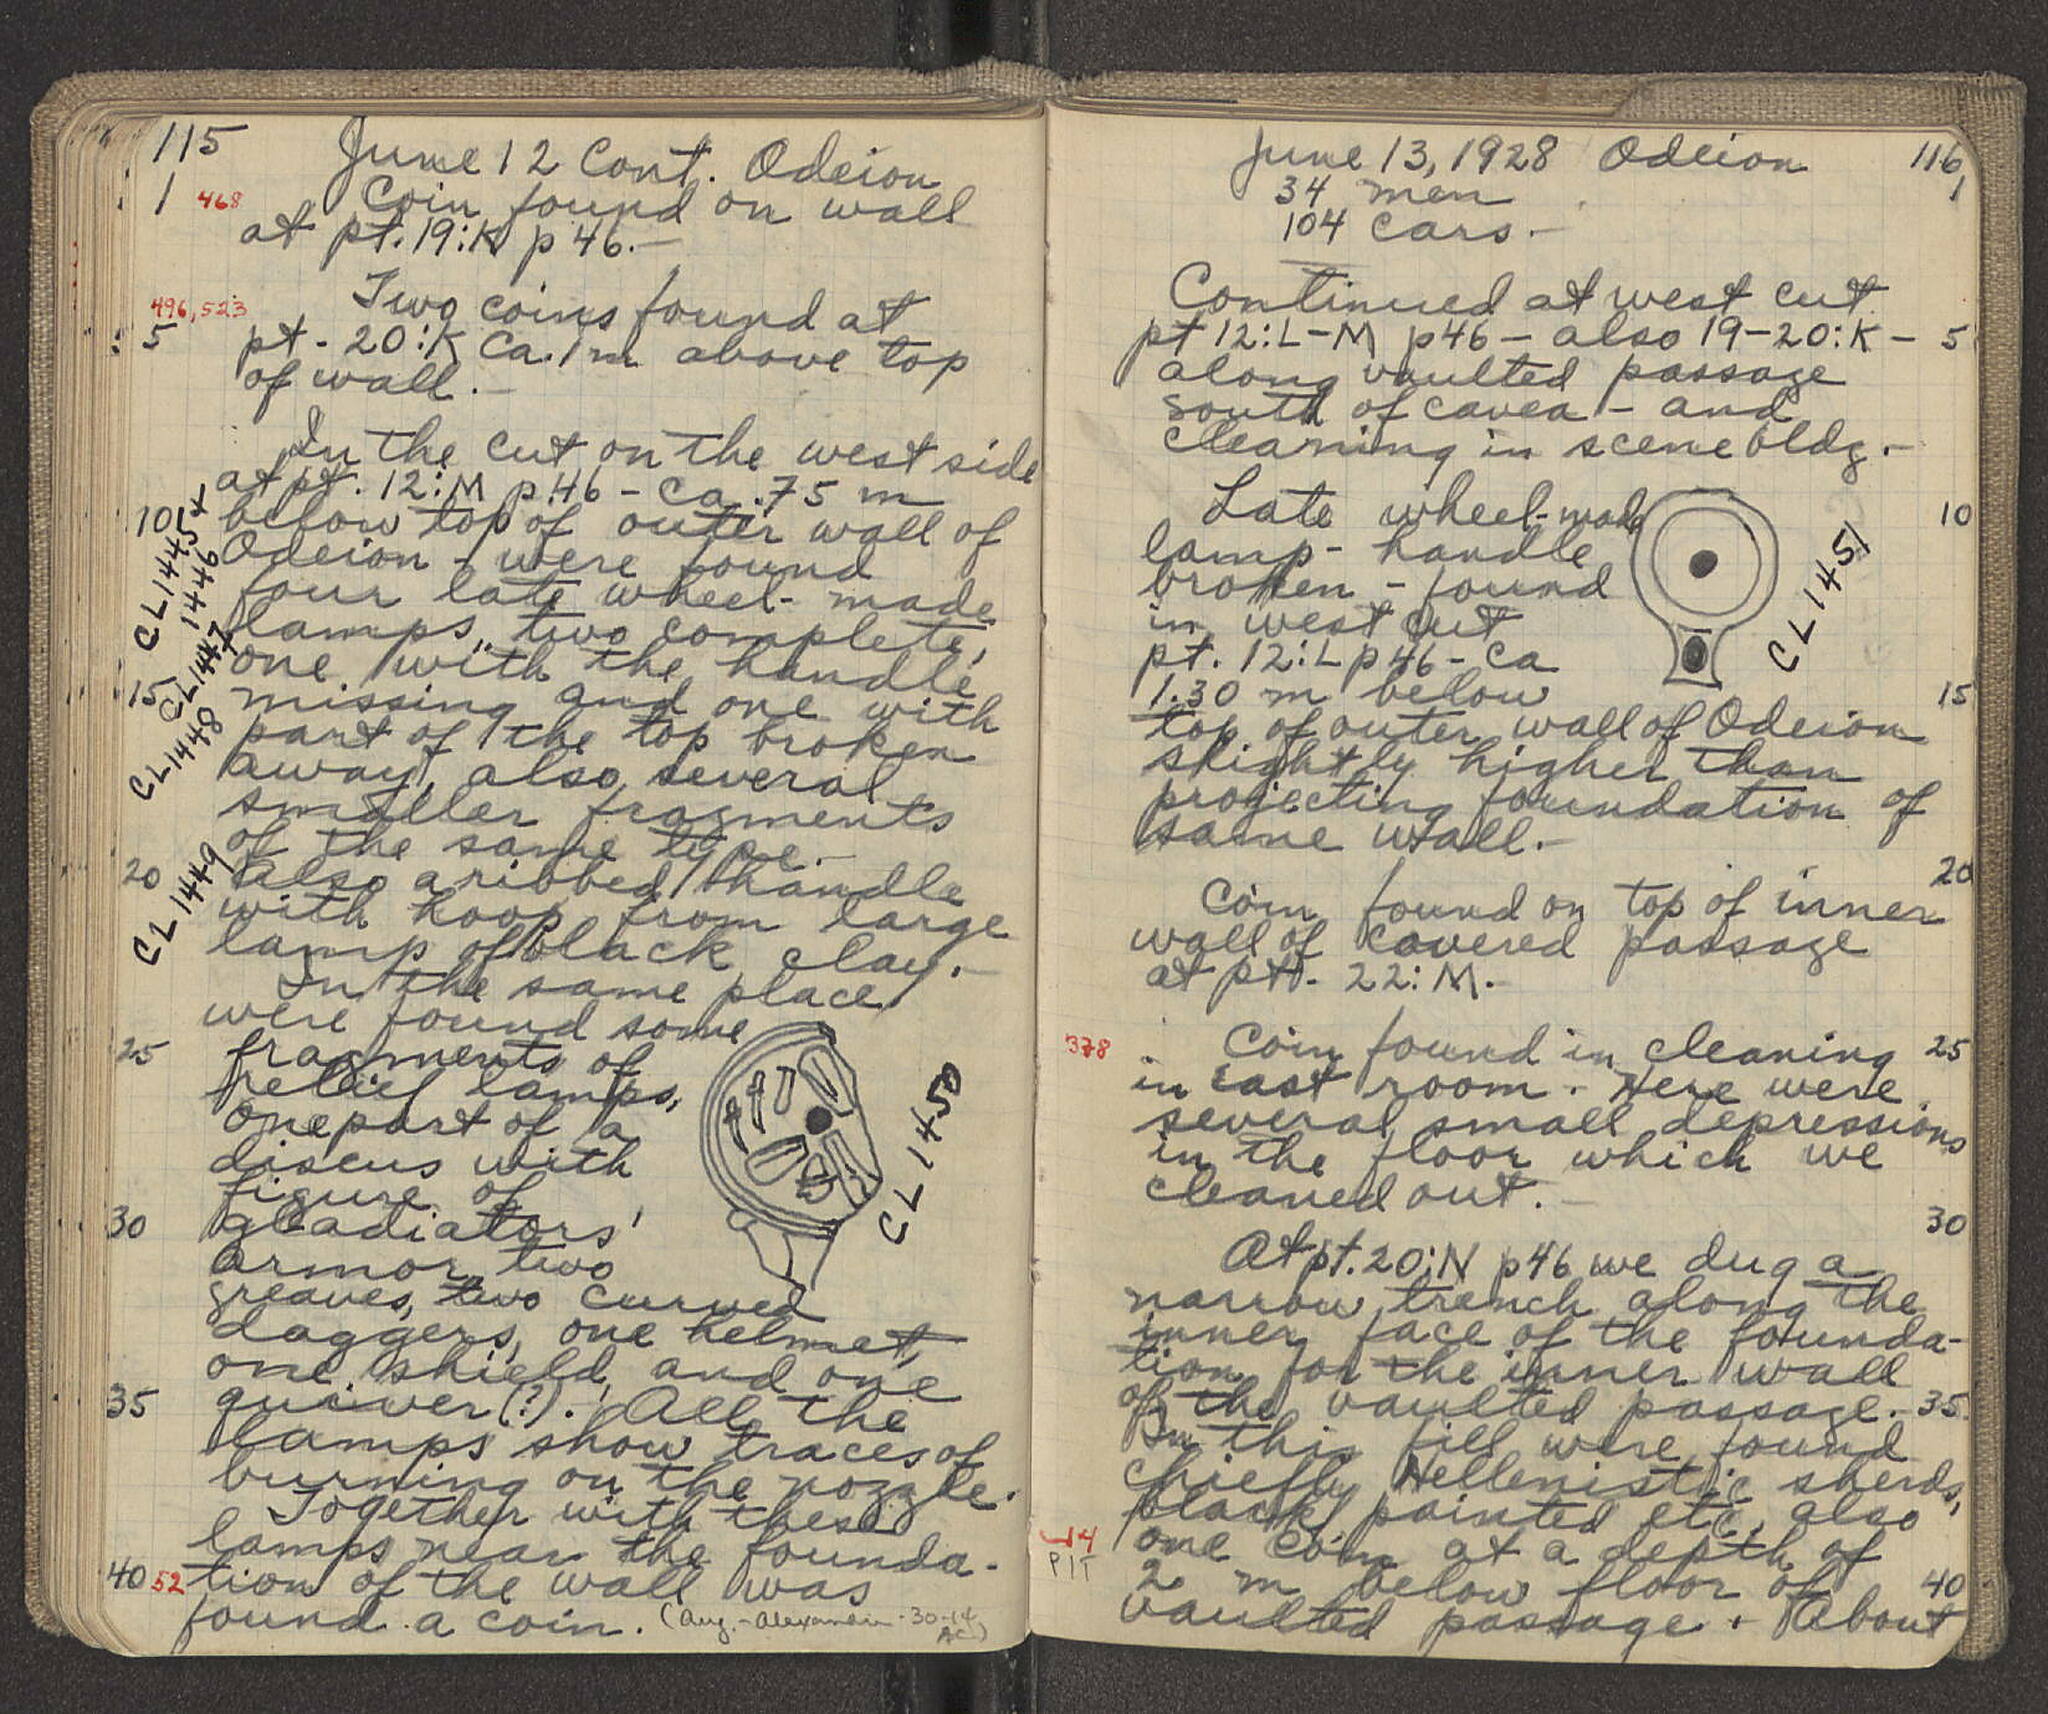 115
June 12 Cont. Odeion
1 468 Coin found on wall
at pt. 19:K p 46.—
496, 523 Two coins found at
5 pt. 20:K ca. 1 m above top
of wall.—
In the cut on the west side
at pt. 12:M p 46 - ca .75 m
10 below top of outer wall of
Odeion - were found
four late wheel-made
lamps, two complete,
one with the handle
15 missing and one with
part of the top broken
away, also several
smaller fragments
of the same type.—
20 Also a ribbed handle
with hoop from large
lamp of black clay.—
In the same place
were found some
25 fragments of
relief lamps,
one part of a
discus with
figure of
30 gladiators'
armor, two
greaves, two curved
daggers, one helmet,
one shield, and one
35 quiver (?). All the
lamps show traces of
burning on the nozzle.
Together with these
lamps near the founda-
40 52 tion of the wall was
found a coin. (Aug. - Alexandria - 30-14
AC)
CL 1445
CL 1446
CL 1447
CL 1448
CL 1449
CL 1450
June 13, 1928 Odeion 116
34 men 1
104 cars.—
Continued at west cut
pt 12:L-M p 46 - also 19-20:K - 5
along vaulted passage
south of cavea - and
cleaning in scene bldg.—
Late wheel-made 10
lamp - handle
broken - found
in west cut
pt. 12:L p 46 - ca
1.30 m below 15
top of outer wall of Odeion
slightly higher than
projecting foundation of
same wall.—
20
Coin found on top of inner
wall of covered passage
at pt. 22:M.—
378 Coin found in cleaning 25
in east room. Here were
several small depressions
in the floor which we
cleaned out.—
30
At pt. 20:N p 46 we dug a
narrow trench along the
inner face of the founda-
tion for the inner wall
of the vaulted passage.- 35
In this fill were found
chiefly Hellenistic sherds,
black painted etc, also
14 one coin at a depth of
PIT 2 m below floor of 40
vaulted passage. About
CL 1451